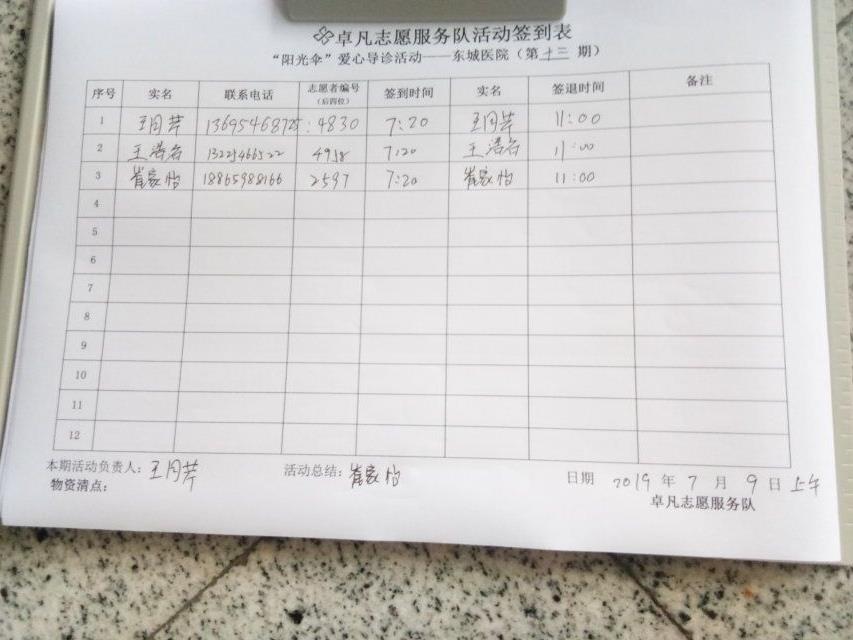 卓凡志愿服务队活动签到表
“阳光伞”爱心导诊活动——东城医院（第 十三 期）
序号 实名 联系电话 志愿者编号（后四位） 签到时间 实名 签退时间 备注
1 王同芹 4830 7:20 王同芹 11:00
2 王浩名 13225466522 4958 7:20 王浩名 11:00
3 崔家怡 18865988166 2597 7:20 崔家怡 11:00
4
5
6
7
8
9
10
11
12
本期活动负责人：王同芹 活动总结：崔家怡 日期 2019 年 7 月 9 日 上午
物资清点： 卓凡志愿服务队